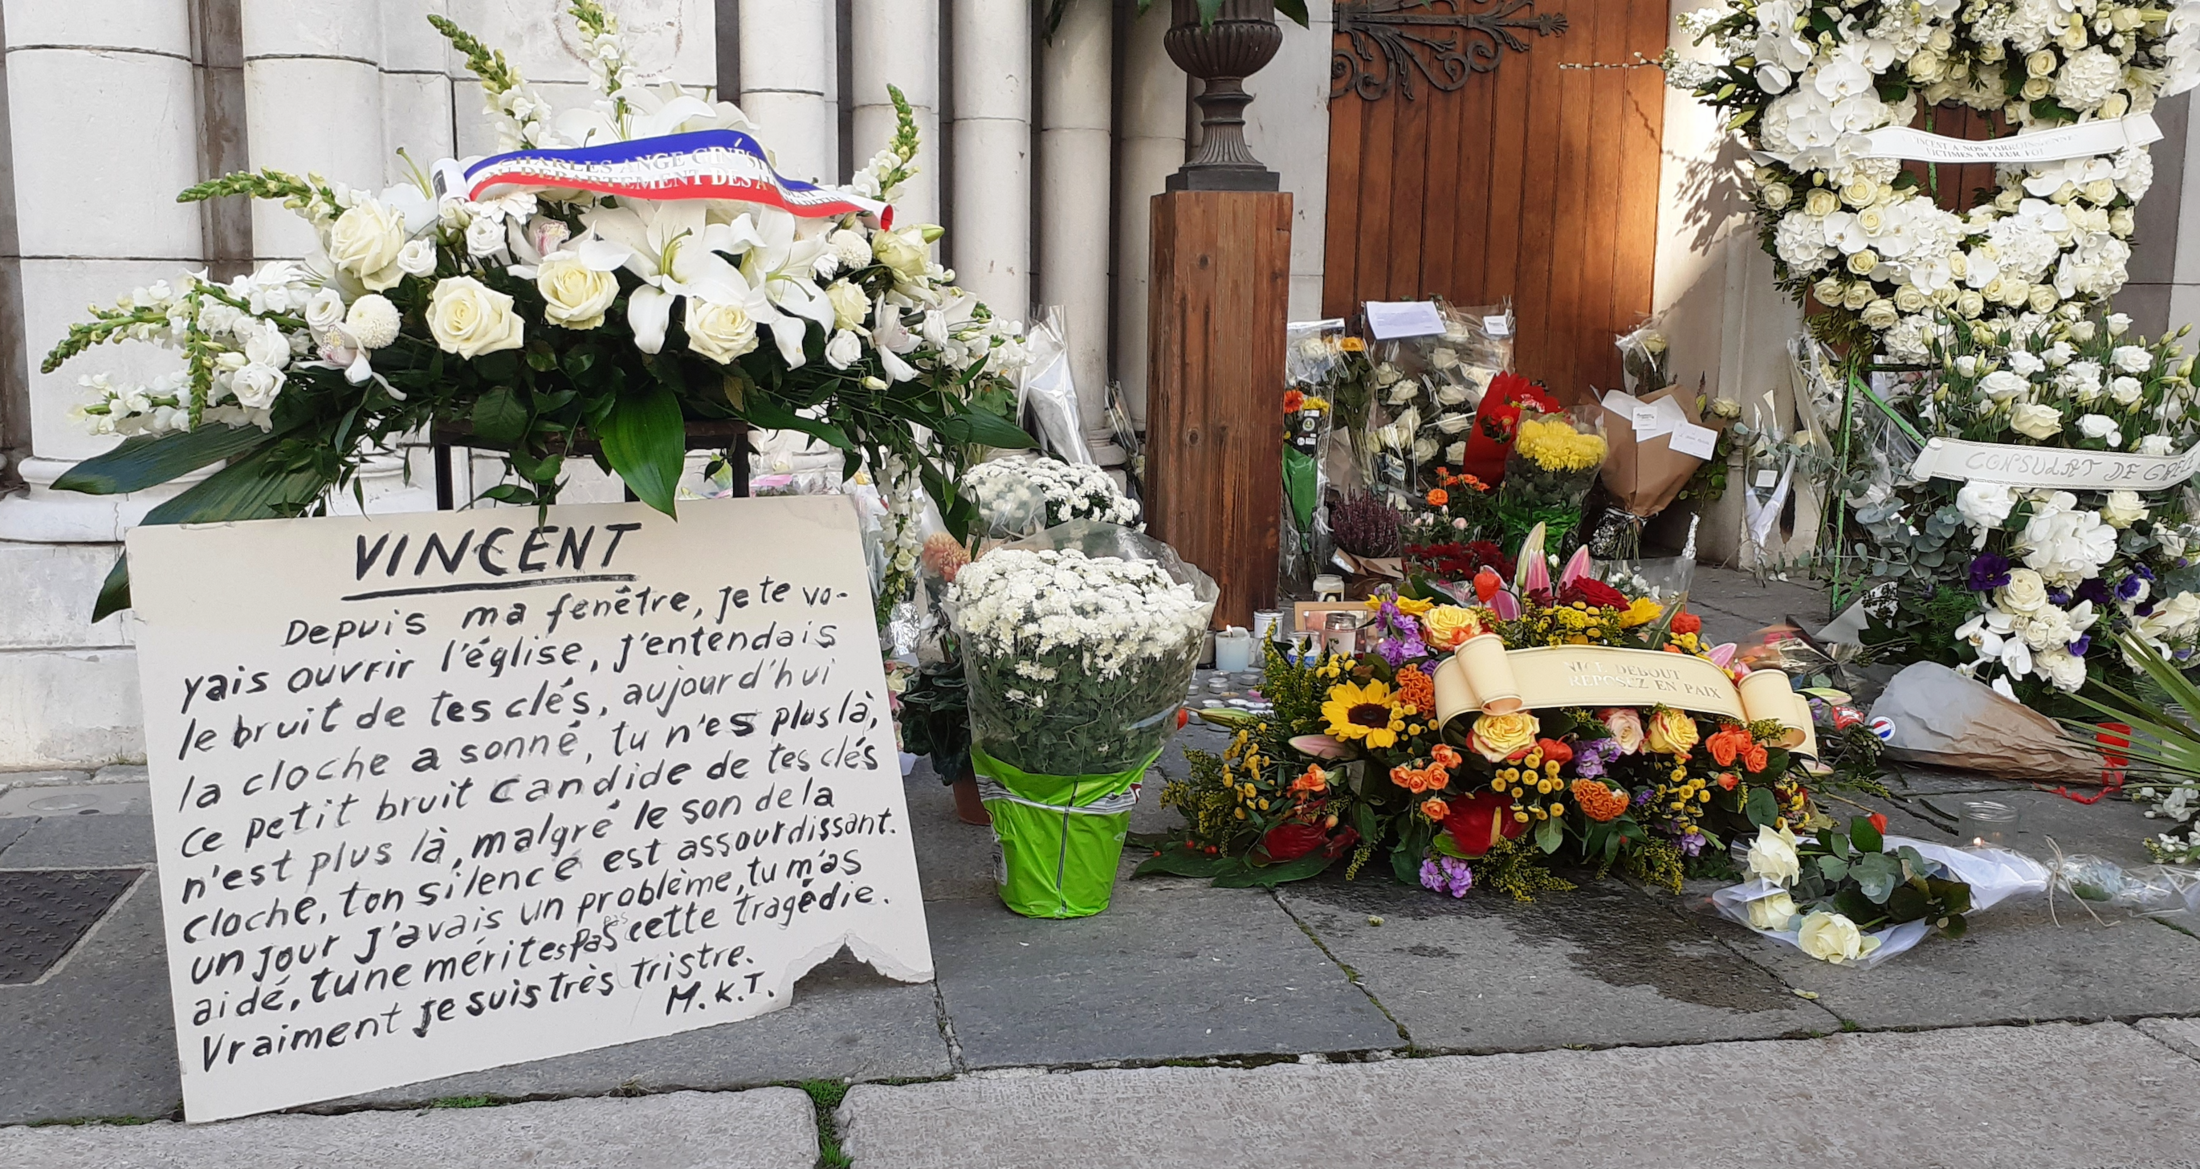 CHARLES ANGE GINÉSY
DÉPARTEMENT DES
A NOS PARROISSIENS
VICTIMES DE LEUR FOI
CONSULAT DE
VINCENT
Depuis ma fenêtre, je te vo-
yais ouvrir l'église, j'entendais
le bruit de tes clés, aujourd'hui
la cloche a sonné, tu n'es plus là,
ce petit bruit candide de tes clés
n'est plus là, malgré le son de la
cloche, ton silence est assourdissant.
un jour j'avais un problème, tu m'as
aidé, tu ne mérites pas cette tragédie.
Vraiment je suis très tristre.
M.K.T.
NICE DEBOUT
REPOSEZ EN PAIX